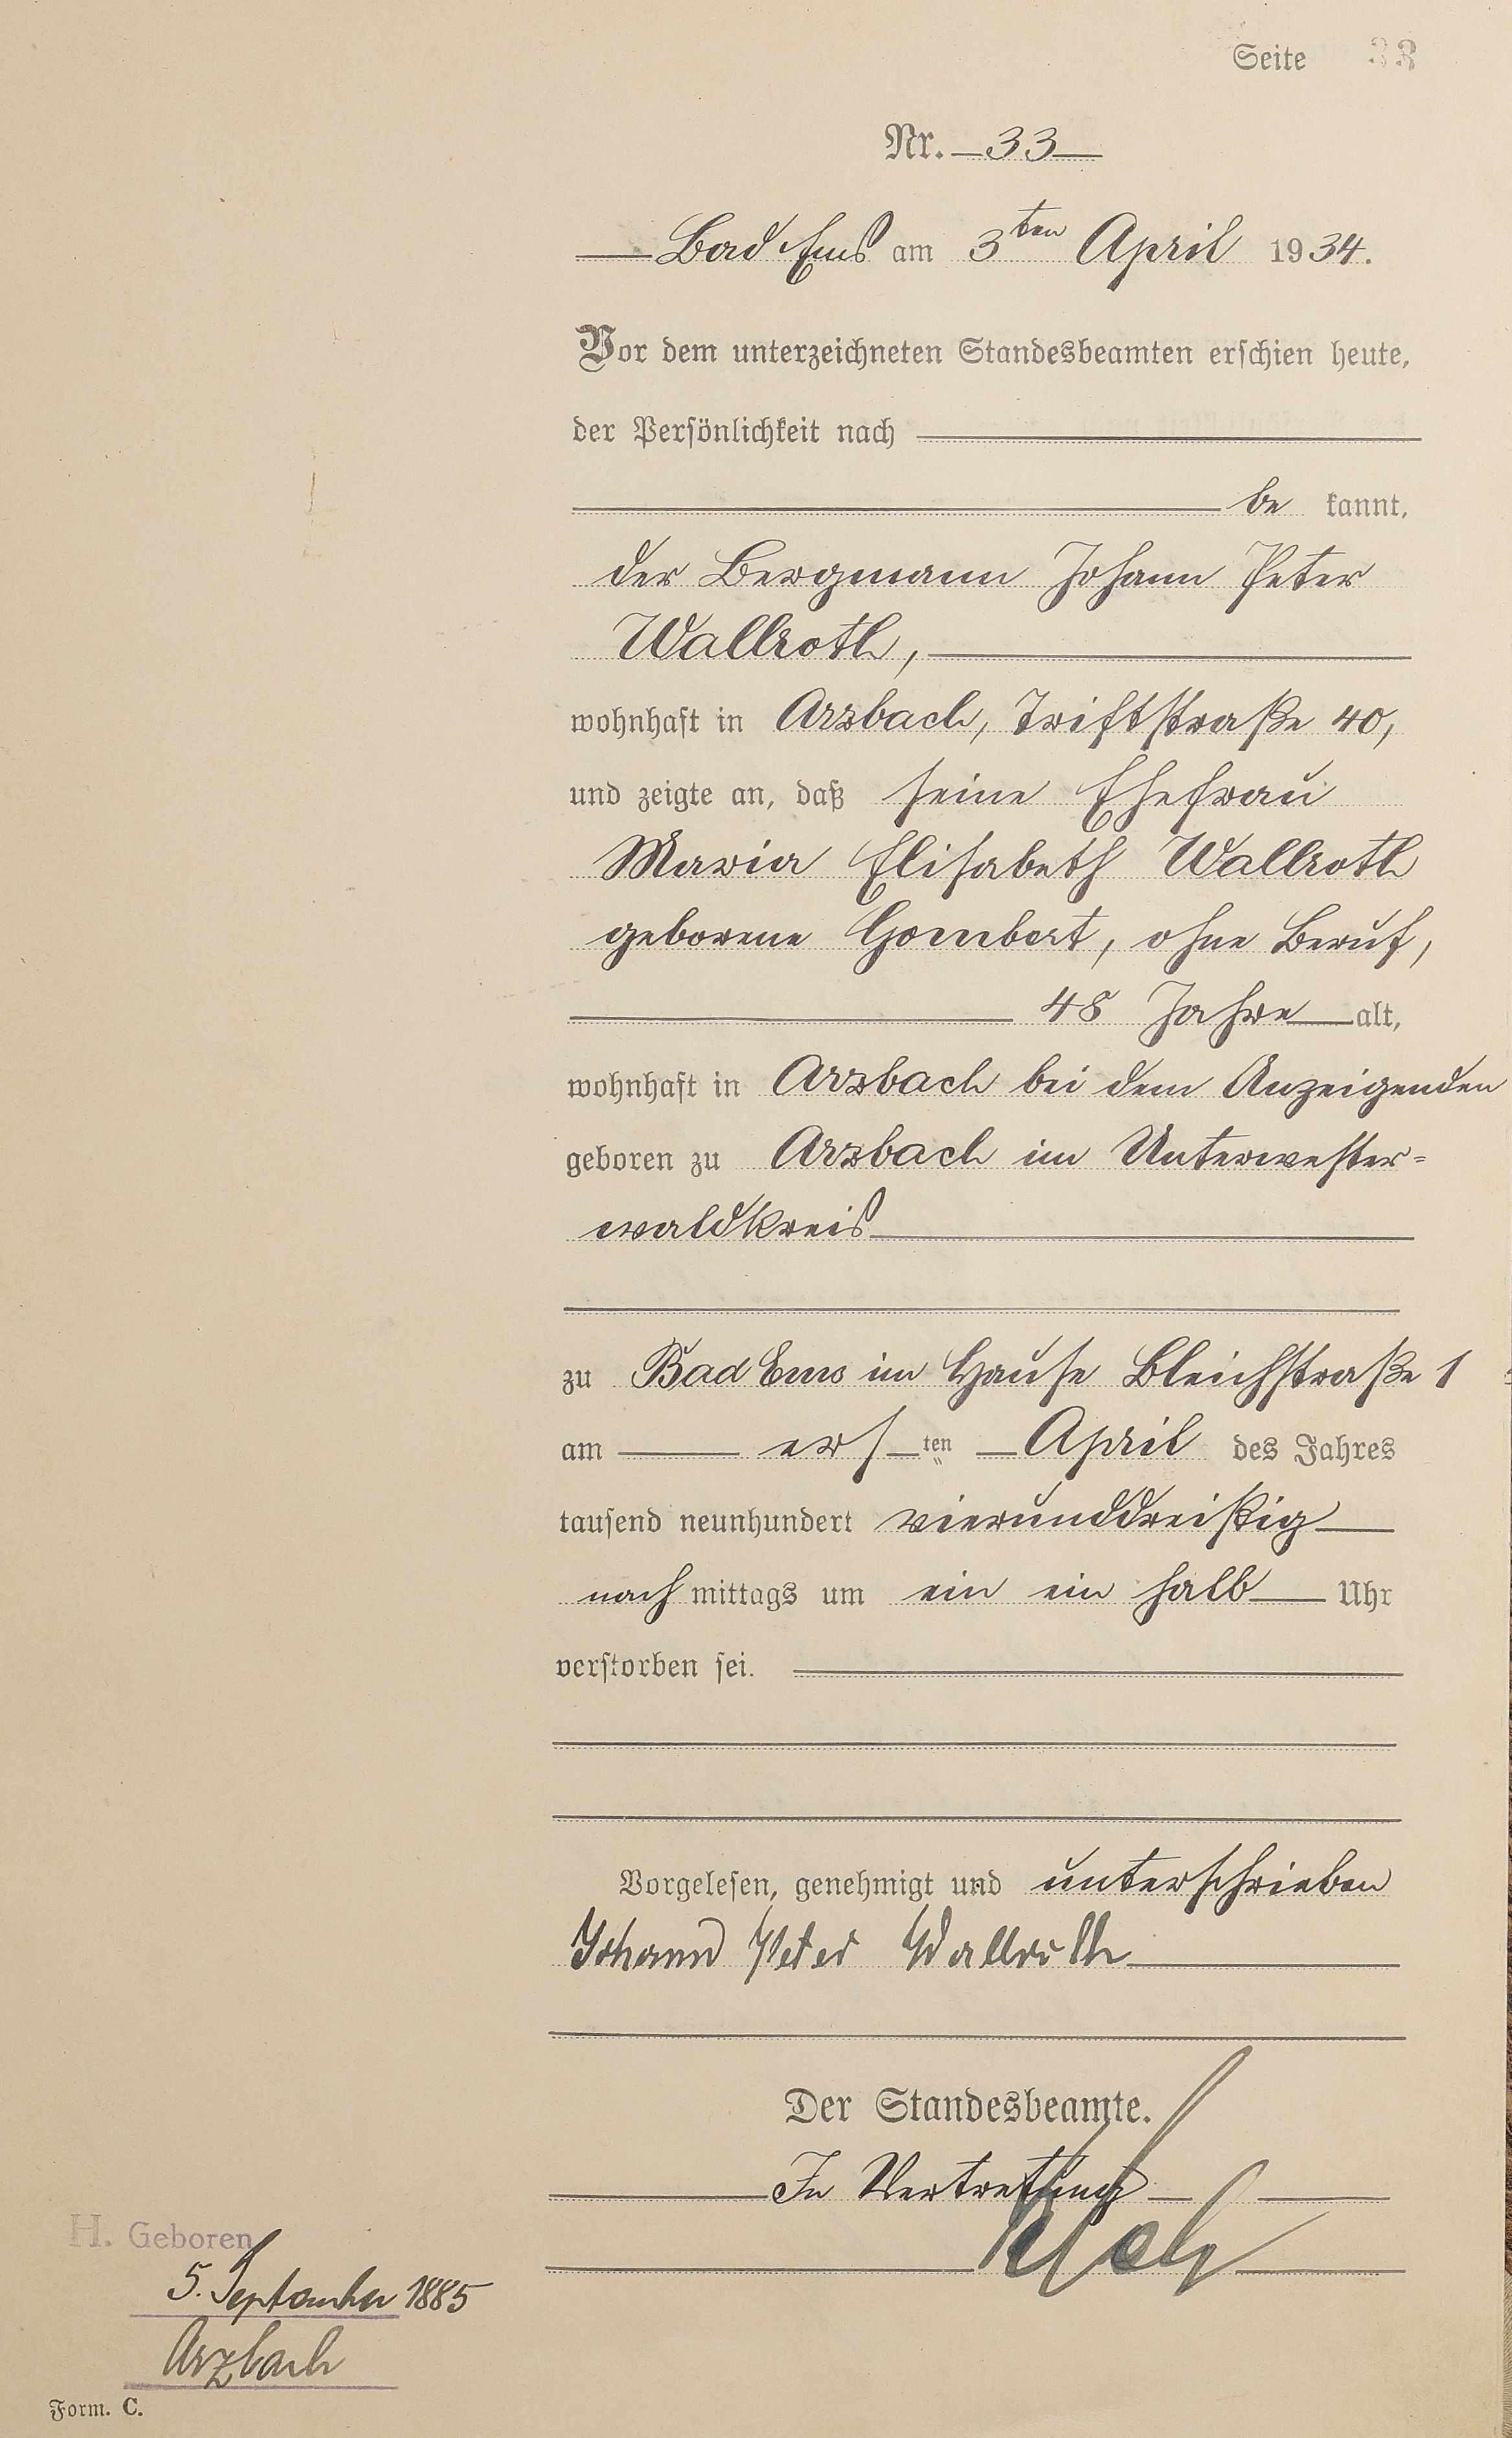 Seite 33
Nr. 33
Bad Ems am 3ten April 1934.
Vor dem unterzeichneten Standesbeamten erschien heute,
der Persönlichkeit nach
be kannt,
der Bergmann Johann Peter
Wallroth,
wohnhaft in Arzbach, Triftstraße 40,
und zeigte an, daß seine Ehefrau
Maria Elisabeth Wallroth
geborene Gombert, ohne Beruf,
48 Jahre alt,
wohnhaft in Arzbach bei dem Anzeigenden
geboren zu Arzbach im Unterwester-
waldkreis
zu Bad Ems im Hause Bleichstraße 1
am ersten April des Jahres
tausend neunhundert vierunddreißig
nach mittags um ein ein halb Uhr
verstorben sei.
Vorgelesen, genehmigt und unterschrieben
Johann Peter Wallroth
Der Standesbeamte.
In Vertretung
H. Geboren
5. September 1885
Arzbach
Form. C.